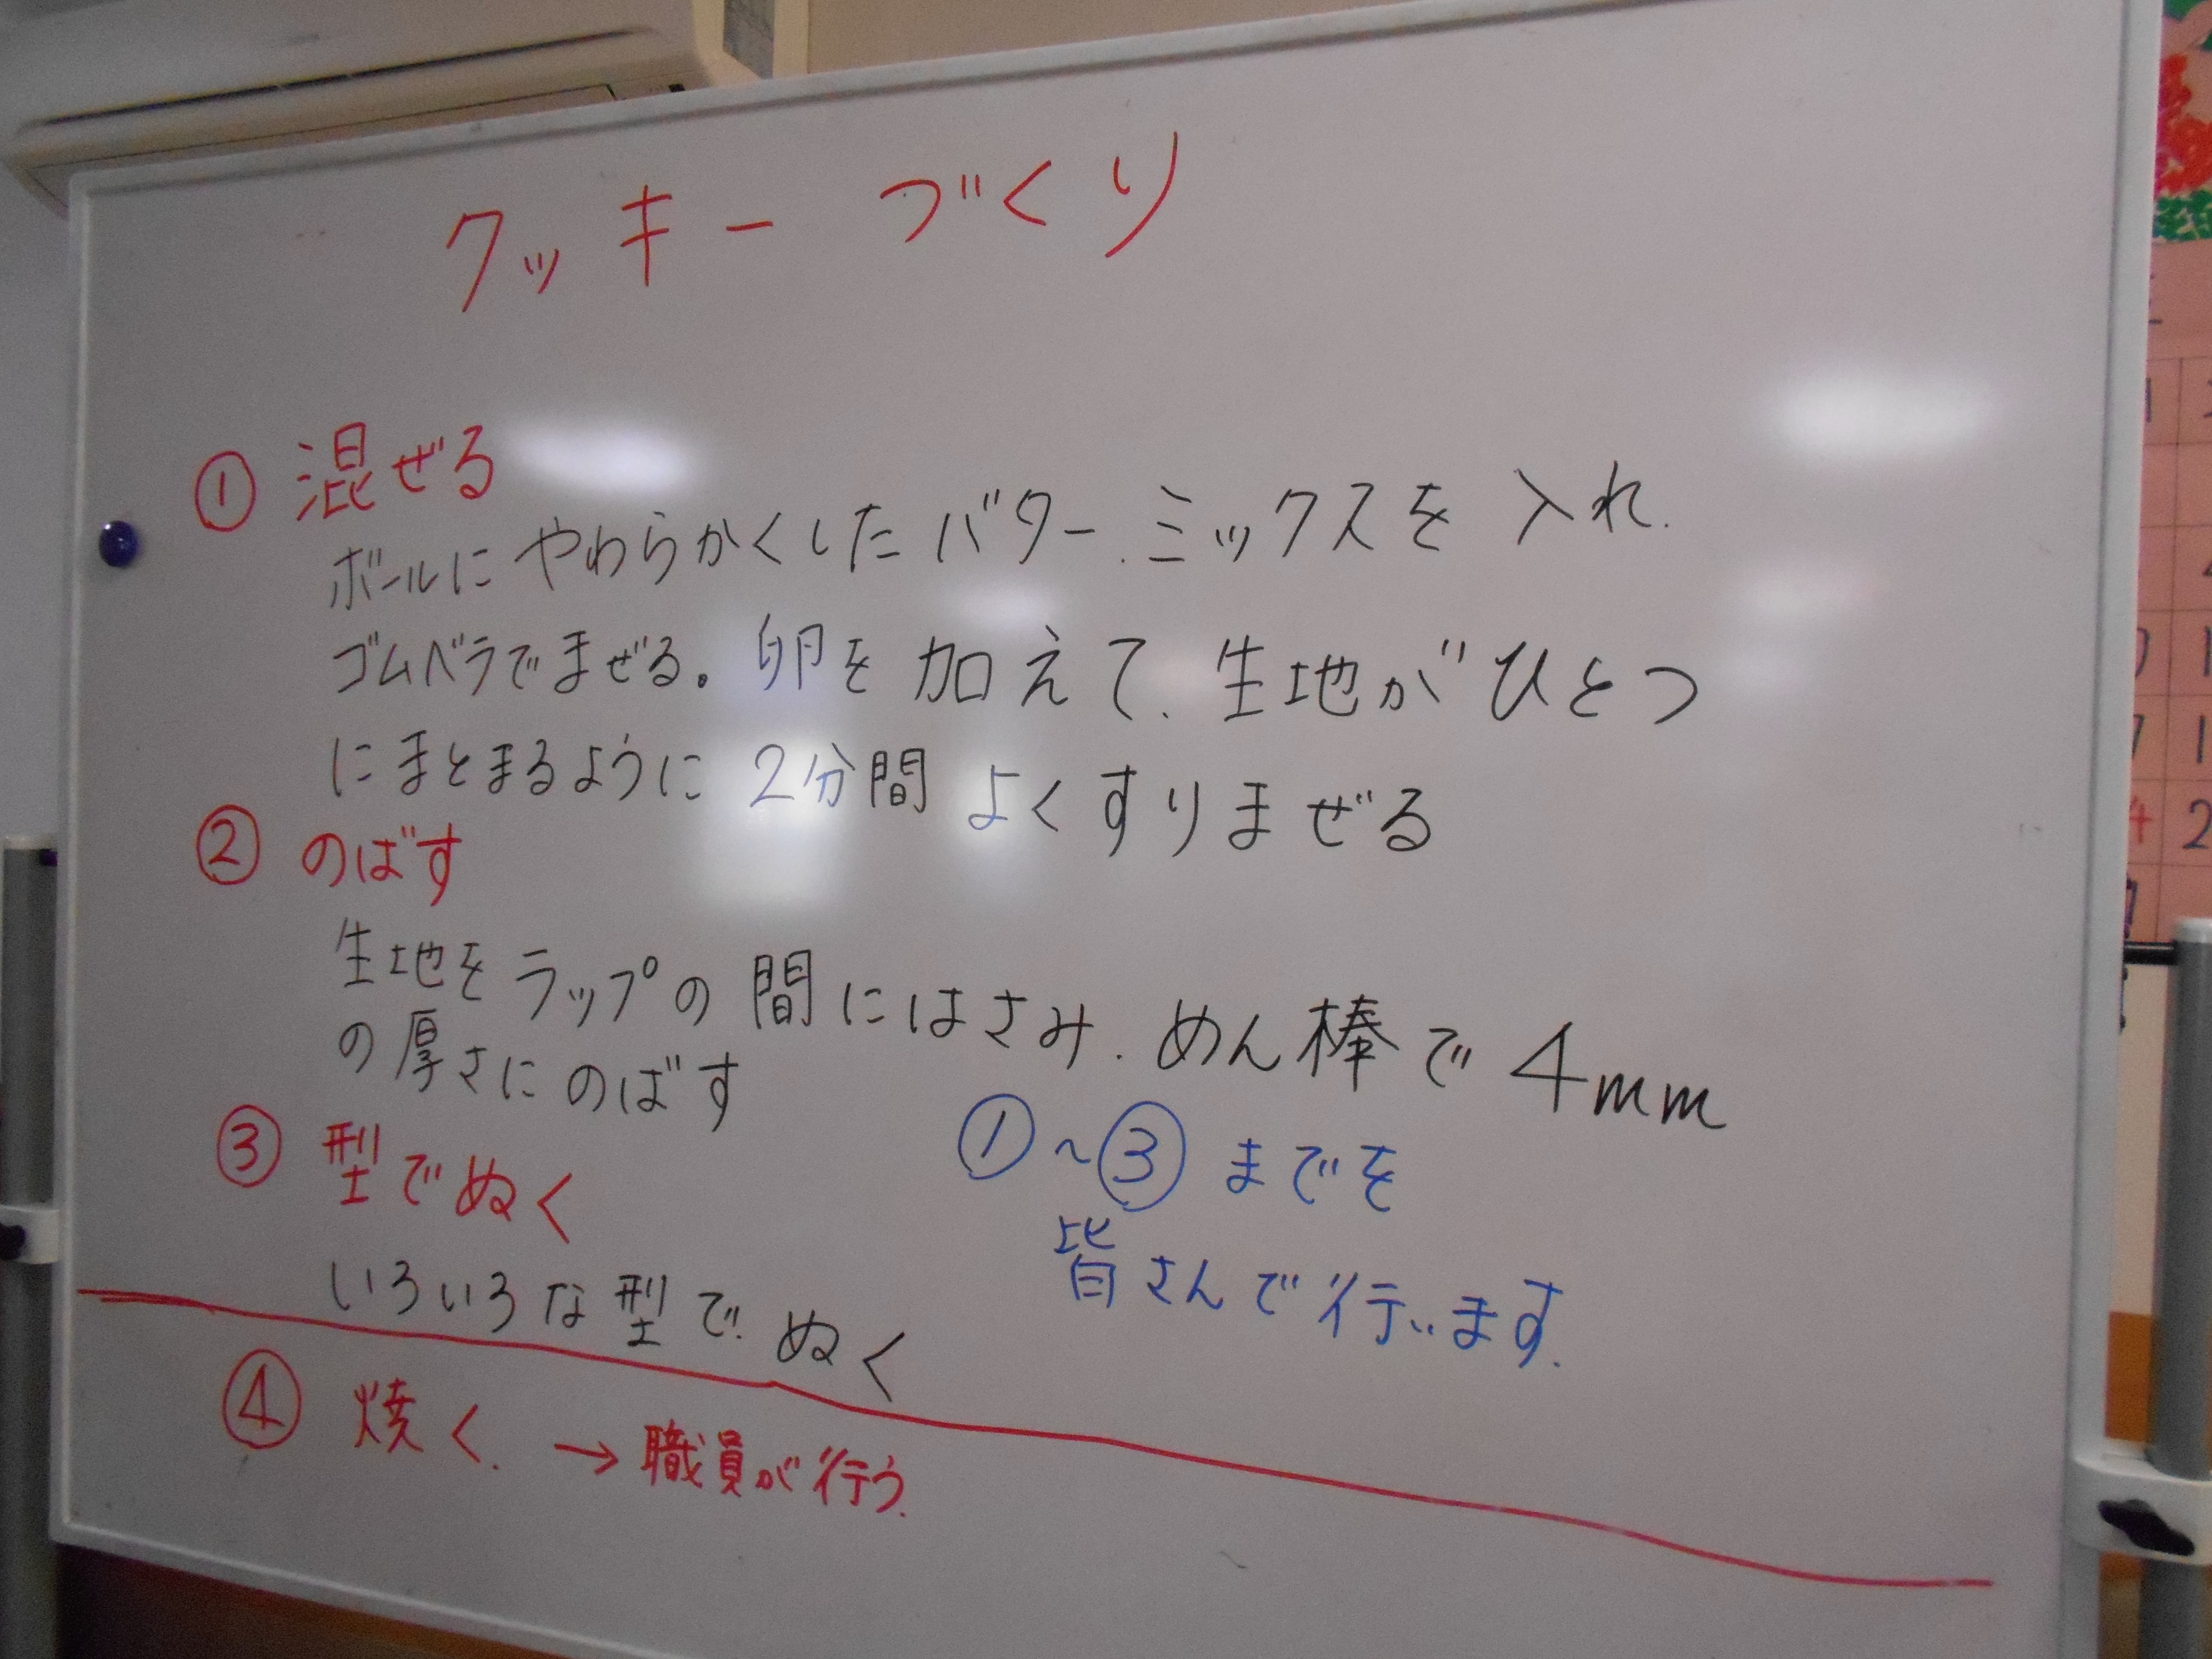 クッキーづくり
① 混ぜる
ボールにやわらかくしたバター、ミックスを入れ、
ゴムベラでまぜる。卵を加えて、生地がひとつ
にまとまるように2分間よくすりまぜる
② のばす
生地をラップの間にはさみ、めん棒で4mm
の厚さにのばす
③ 型でぬく
いろいろな型でぬく
①~③までを
皆さんで行います。
④ 焼く。→職員が行う。